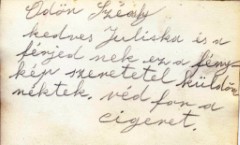 Ödön Szécsy
kedves Juliska és a
férjed nek ez a fény
kép szeretetel küldöm
néktek. véd fon a
cigeret.